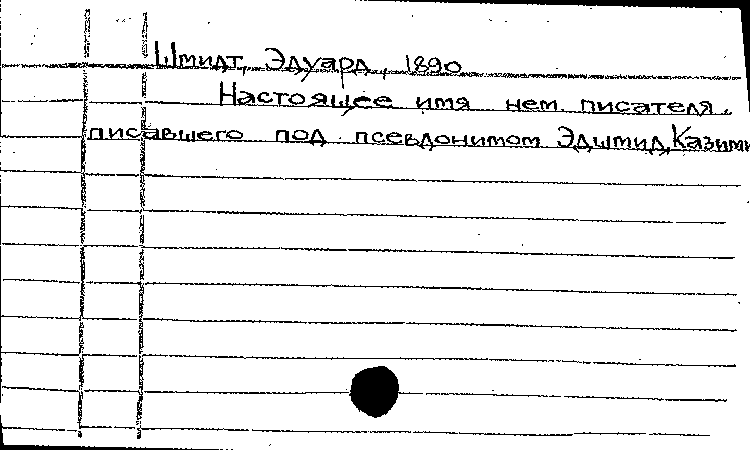 Шмидт, Эдуард, 1890
Настоящее имя нем. писателя,
писавшего под псевдонимом Эдшмид, Казими